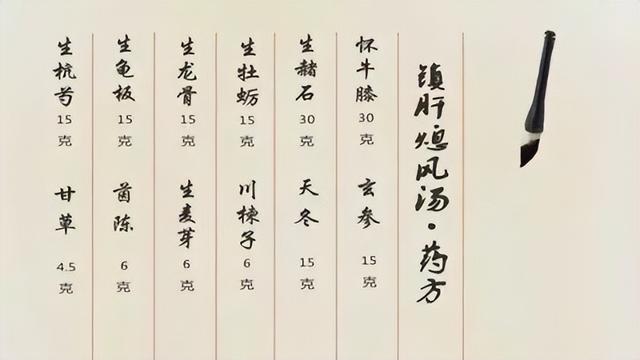 镇肝熄风汤·药方
怀牛膝 30克 玄参 15克
生赭石 30克 天冬 15克
生牡蛎 15克 川楝子 6克
生龙骨 15克 生麦芽 6克
生龟板 15克 茵陈 6克
生杭芍 15克 甘草 4.5克